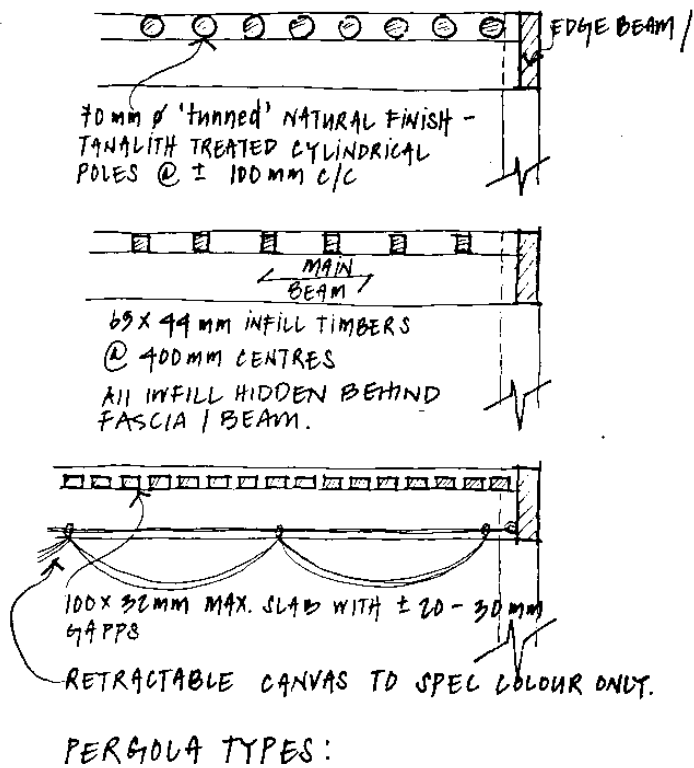 EDGE BEAM /
70 mm ø 'tunned' NATURAL FINISH -
TANALITH TREATED CYLINDRICAL
POLES @ ± 100 mm C/C
MAIN
BEAM
69 x 44 mm INFILL TIMBERS
@ 400 mm CENTRES
All INFILL HIDDEN BEHIND
FASCIA / BEAM.
100 x 32 mm MAX. SLAB WITH ± 20 - 30 mm
GAPPS
RETRACTABLE CANVAS TO SPEC COLOUR ONLY.
PERGOLA TYPES: